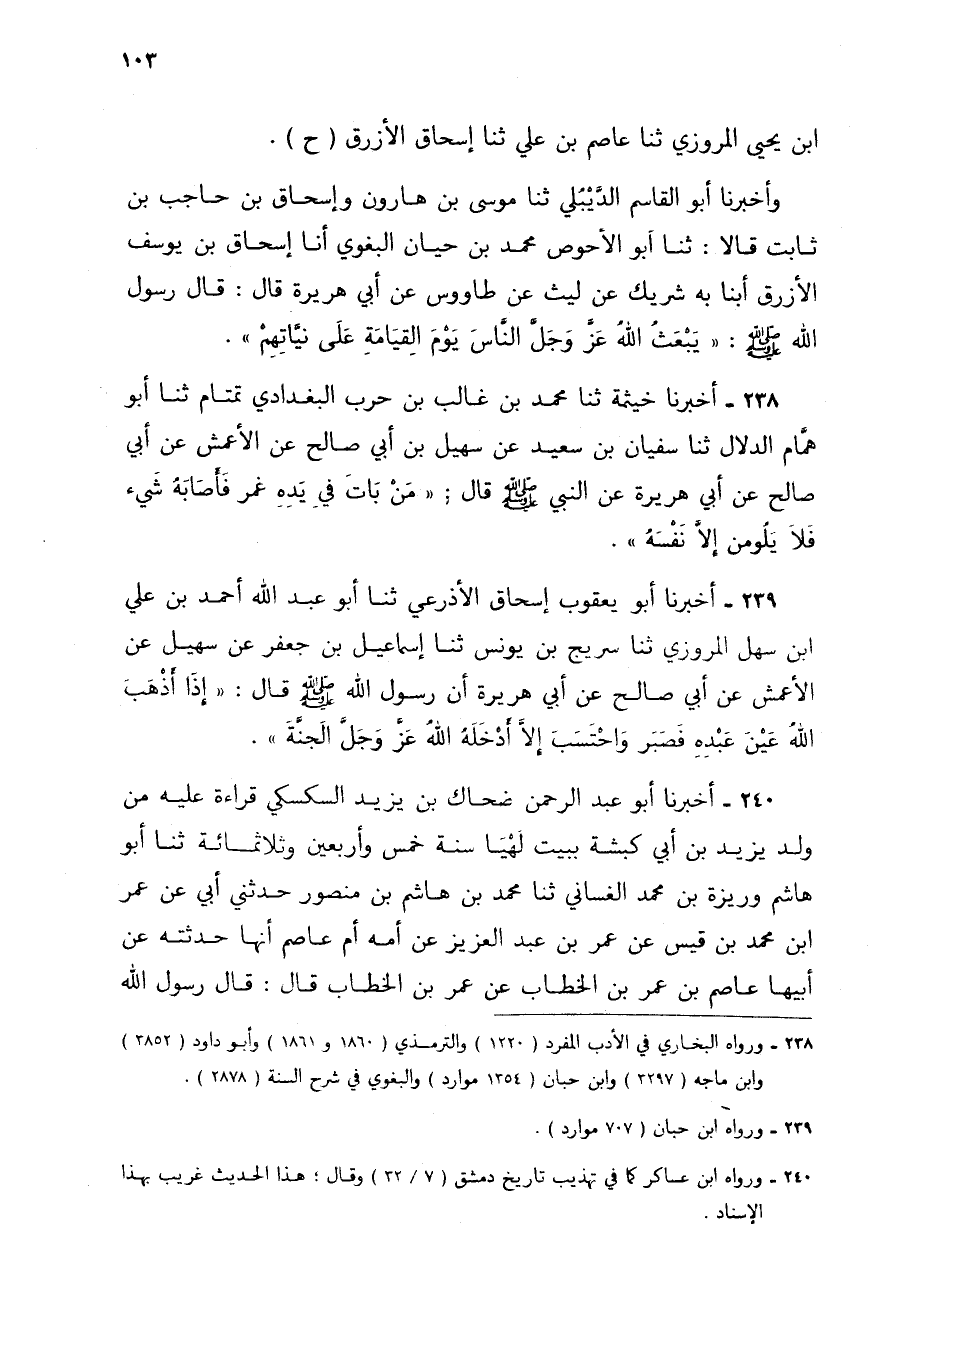 ١٠٣
ابن يحيى المروزي ثنا عاصم بن علي ثنا إسحاق الأزرق ( ح ) .
وأخبرنا أبو القاسم الدَّيْبُلي ثنا موسى بن هارون وإسحاق بن حاجب بن
ثابت قالا : ثنا أبو الأحوص محمد بن حيان البغوي أنا إسحاق بن يوسف
الأزرق أبنا به شريك عن ليث عن طاووس عن أبي هريرة قال : قال رسول
الله ﷺ : « يَبْعَثُ اللهُ عَزَّ وَجَلَّ النَّاسَ يَوْمَ القِيَامَةِ عَلَى نيَّاتِهِمْ » .
٢٣٨ - أخبرنا خيثمة ثنا محمد بن غالب بن حرب البغدادي تمتام ثنا أبو
همَّام الدلال ثنا سفيان بن سعيد عن سهيل بن أبي صالح عن الأعمش عن أبي
صالح عن أبي هريرة عن النبي ﷺ قال : « مَنْ بَاتَ في يَدِهِ غمر فَأَصَابَهُ شَيء
فَلاَ يَلُومن إلاَّ نَفْسَهُ » .
٢٣٩ - أخبرنا أبو يعقوب إسحاق الأذرعي ثنا أبو عبد الله أحمد بن علي
ابن سهل المروزي ثنا سريج بن يونس ثنا إسماعيل بن جعفر عن سهيل عن
الأعمش عن أبي صالح عن أبي هريرة أن رسول الله ﷺ قال : « إِذَا أَذْهَبَ
اللهُ عَيْنَ عَبْدِهِ فَصَبَر وَاحْتَسَبَ إلاَّ أَدْخَلَهُ اللهُ عَزَّ وَجَلَّ الَجنَّةَ » .
٢٤٠ - أخبرنا أبو عبد الرحمن ضحاك بن يزيد السكسكي قراءة عليه من
ولد يزيد بن أبي كبشة ببيت لَهْيَا سنة خمس وأربعين وثلاثمائة ثنا أبو
هاشم وريزة بن محمد الغساني ثنا محمد بن هاشم بن منصور حدثني أبي عن عمر
ابن محمد بن قيس عن عمر بن عبد العزيز عن أمه أم عاصم أنها حدثته عن
أبيها عاصم بن عمر بن الخطاب عن عمر بن الخطاب قال : قال رسول الله
٢٣٨ - ورواه البخاري في الأدب المفرد ( ١٢٢٠ ) والترمذي ( ١٨٦٠ و ١٨٦١ ) وأبو داود ( ٣٨٥٢ )
وابن ماجه ( ٣٢٩٧ ) وابن حبان ( ١٣٥٤ موارد ) والبغوي في شرح السنة ( ٢٨٧٨ ) .
٢٣٩ - ورواه ابن حبان ( ٧٠٧ موارد ) .
٢٤٠ - ورواه ابن عساكر كما في تهذيب تاريخ دمشق ( ٧ / ٣٢ ) وقال : هذا الحديث غريب بهذا
الإسناد .